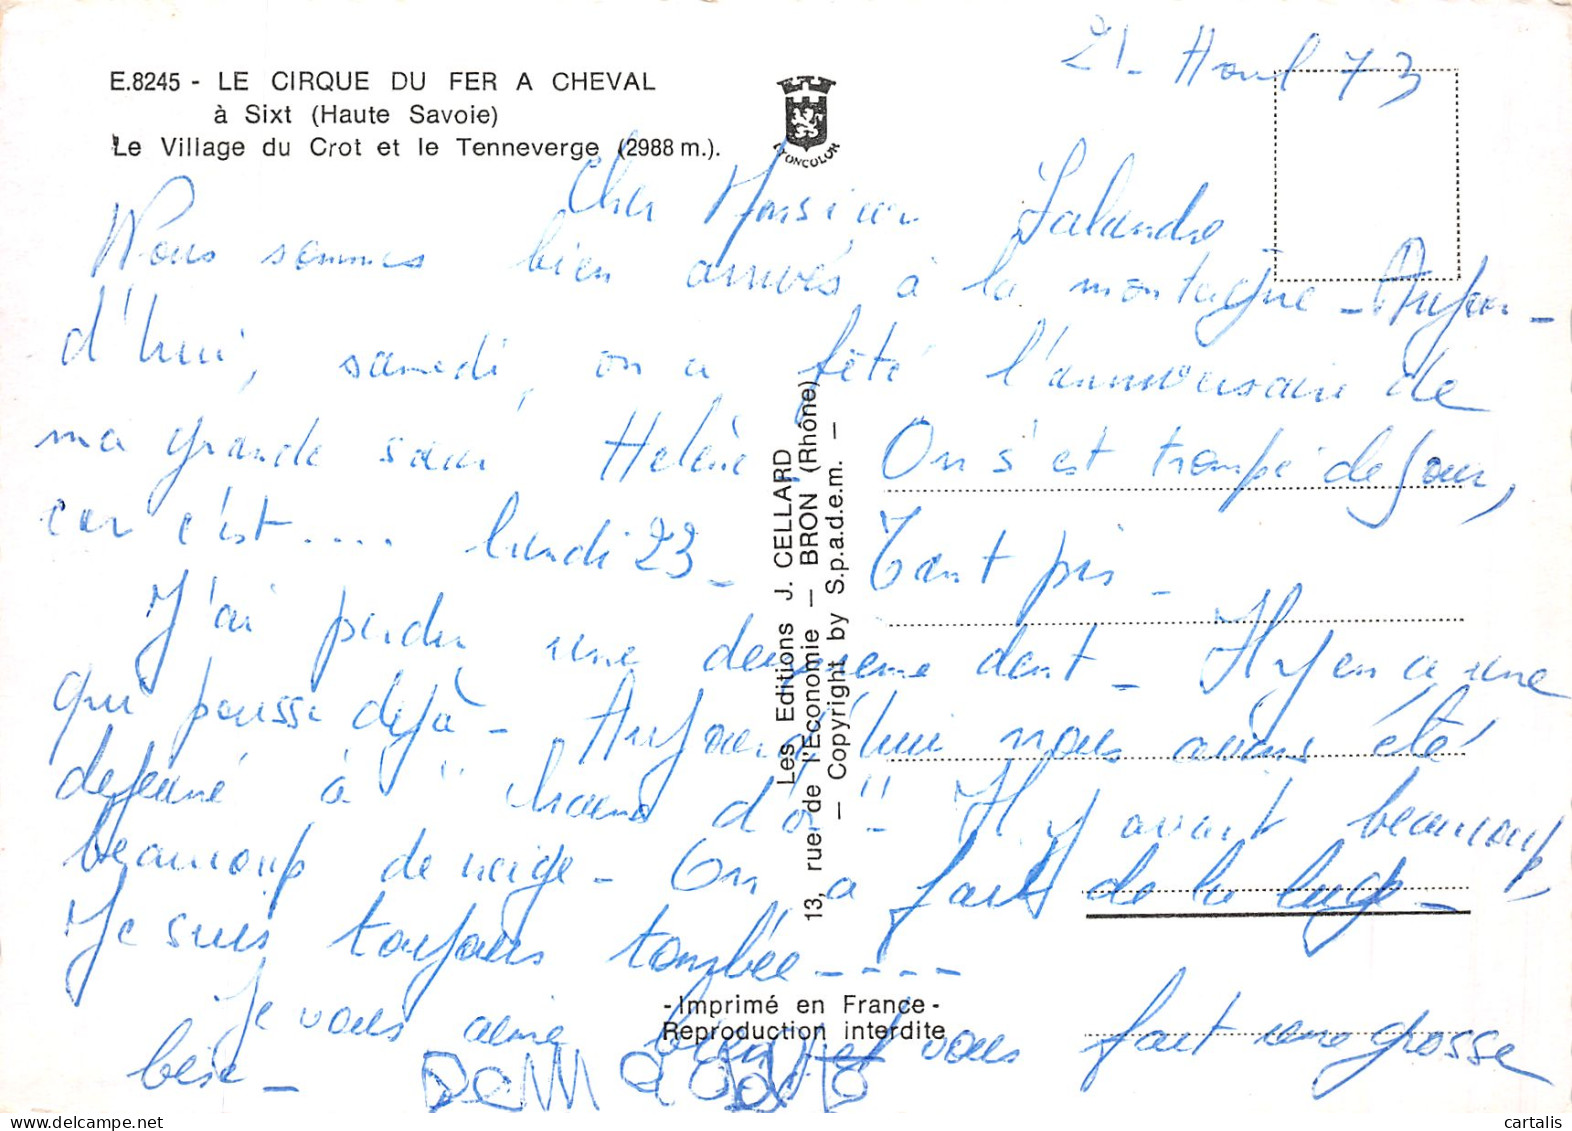 21. Avril 73
E.8245 - LE CIRQUE DU FER A CHEVAL
à Sixt (Haute Savoie)
Le Village du Crot et le Tenneverge (2988 m.).
LYONCOLOR
Cher Monsieur
Nous sommes bien arrivés à la montagne - Aujour-
d'hui, samedi, on a fêté l'anniversaire de
ma grande sœur Helène On s'est trompé de jour,
car c'est .... lundi 23 - Tant pis -
J'ai perdu une deuxieme dent - Il y en a une
qui pousse dejà - Aujourd'hui nous avions été
dejeuné à " d'or " Il y avait beaucoup,
beaucoup de neige - On a fait de la luge -
Je suis toujours tombée - - - -
Je vous aime bien et vous fait une grosse
bise -
Les Editions J. CELLARD
13, rue de l'Economie — BRON (Rhône)
— Copyright by S.p.a.d.e.m. —
- Imprimé en France -
Reproduction interdite
cartalis